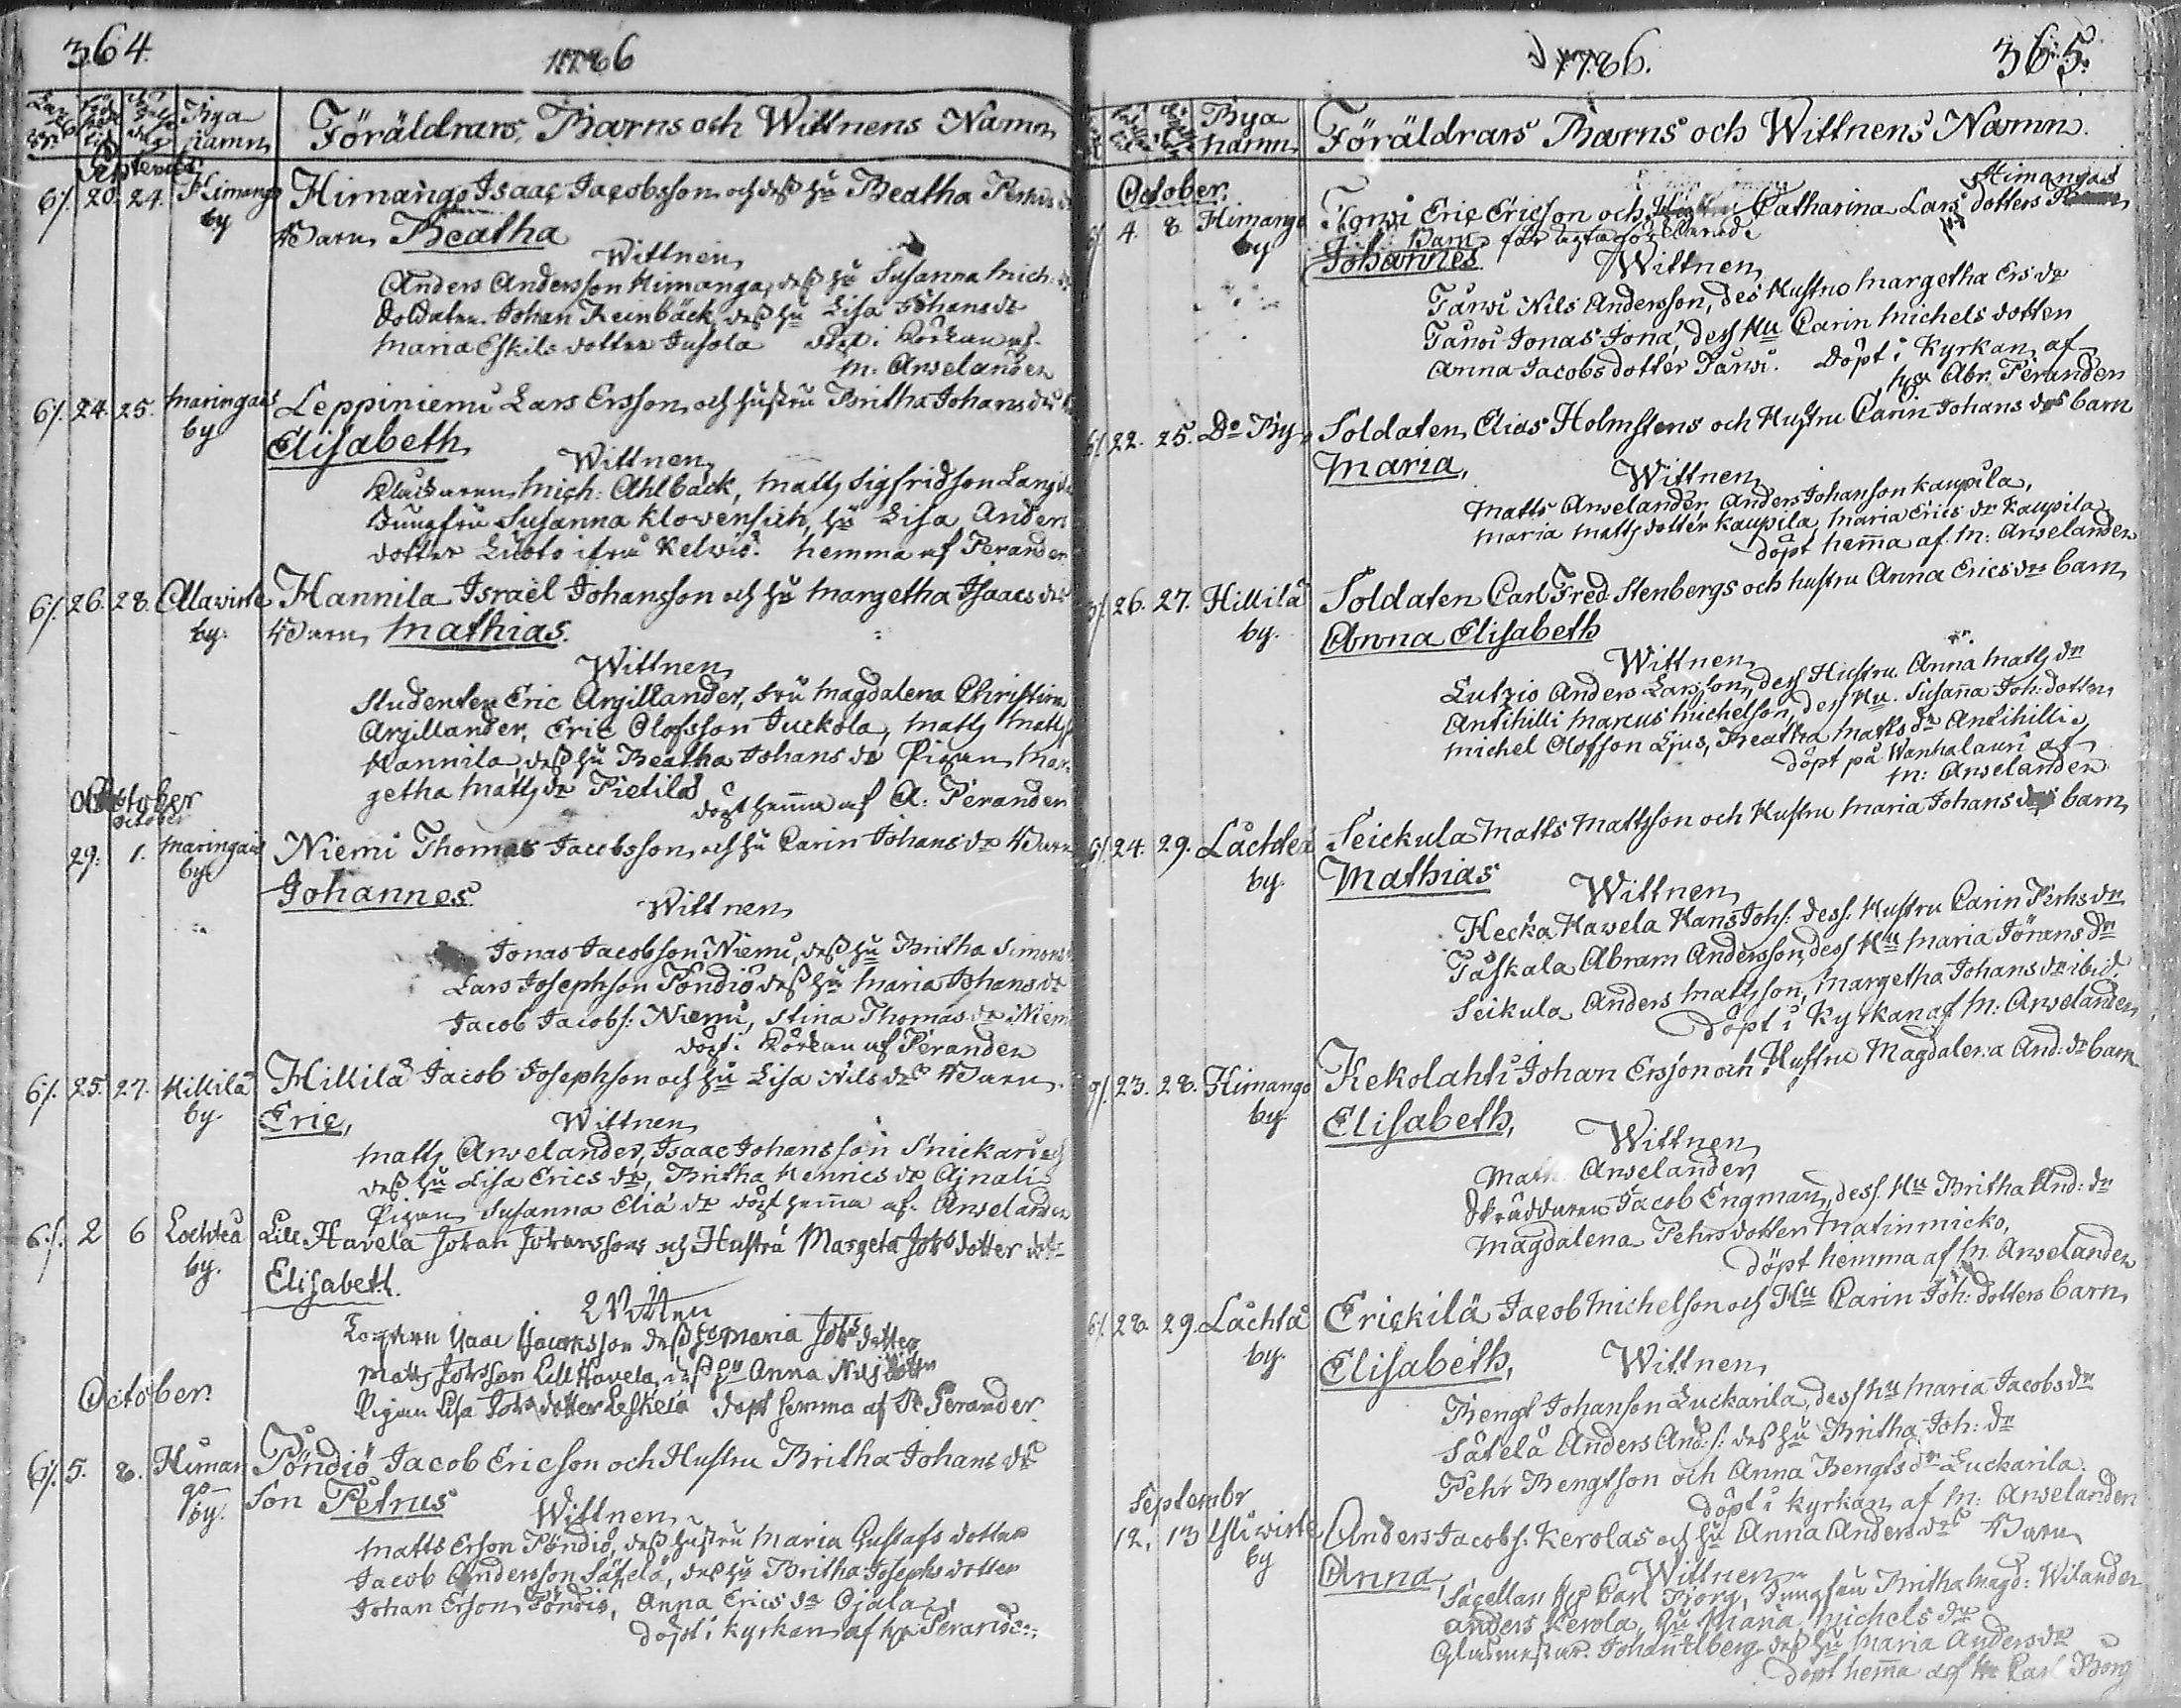 364.
1786
Bya namn
Föräldrars, Barns och Wittnens Namn
September
6/. 20. 24. Himango by
Himango Isaac Jacobsson och deß hu Beatha Pehrs
Barn Beatha
Wittnen
Anders Andersson Himanga, deß hu Susanna Mich:
Soldaten Johan Reinbäck deß hu Lisa Johans dr
Maria Eskils dotter Jusola döpt i Kÿrkan af
M: Arvelander
6/. 24. 25. Maringais by
Leppiniemi Lars Ersson och hustru Britha Johans drs
Elisabeth
Wittnen
Klåckaren Mich: Ahlbäck, Matts Sigfridsson
Jungfru Susanna Klovensich, hu Lisa Anders
dotter ifrå Kelviå. hemma af Perander
6/. 26. 28. Allavirte by.
Hannila Israël Johansson och hu Margetha Isaacs drs
Barn Mathias.
Wittnen
Studenten Eric Argillander, fru Magdalena Christina
Argillander, Eric Olofsson Juckola, Matts Matts
Hannila, deß hu Beatha Johans dr Pigan Mar
getha Matts dr Pietilä
döpt hemma af A: Perander
October
October
29. 1. Maringais by
Niemi Thomas Jacobsson och hu Carin Johans dr Barn
Johannes
Wittnen
Jonas Jacobsson Niemi, deß hu Britha Simons
Lars Josephson Pöndiö deß hu Maria Johans dr
Jacob Jacobs: Niemi, Stina Thomas dr Niem
döpt i Kÿrkan af Perander
6/. 25. 27. Hillilä by.
Hillilä Jacob Josephson och hu Lisa Nils drs Barn
Eric,
Wittnen
Matts Arvelander, Isaac Johansson Snickari och
deß hu Lisa Erics dr, Britha Henrics dr Ajnali
Pigan Susanna Eliæ dr döpt hemma af. Arvelander
6/. 2 6 Lochteå by.
Lill Havela Johan Johansson och Hustru Margeta Johs dotter
Elisabeth.
Witten
Isaac Jacobsson deß hu Maria Johs dotter
Matts Johsson Lill Havela, deß hu Anna Nils dotter
Pigan Lisa Johs dotter Leskelä döpt hemma af A Perander
October.
6/. 5. 8. Himan go by.
Pöndiö Jacob Ericson och Hustru Britha Johans dr
Son Petrus
Wittnen
Matts Erson Pöndiö, deß hustru Maria Gustafs dotter
Jacob Anderson Sätelä, deß hu Britha Josephs dotter
Johan Erson Pöndiö, Anna Erics dr Ojala
döpt i kyrkan af hr Perander
1786.
365.
Bya namn
Föräldrars Barns och Wittnens Namn.
October.
6/. 4. 8 Himango by
Torvi Eric Ericson och Catharina Lars dotters Himangas
Barn för ägta förklarade
Johannes
Wittnen
Tårvi Nils Andersson, des Hustru Margetha Ers dr
Tårvi Jonas Jona, dess Hu Carin Michels dotter
Anna Jacobs dotter Tårvi. Döpt i Kyrkan af
hr Abr. Perander
6/ 22. 25. Do By
Soldaten Elias Holmstens och Hustru Carin Johans drs barn
Maria,
Wittnen
Matts Arvelander Anders Johanson Kaupila,
Maria Matts dotter Kaupila Maria Erics dr Kaupila
döpt hemma af M: Arvelander
3/. 26. 27. Hillilä by.
Soldaten Carl Fred. Stenbergs och hustru Anna Erics drs barn
Anna Elisabeth
Wittnen
Lutzio Anders Larsson, dess Hustru Anna Matts dr
Antihilli Marcus Michelson, dess Hu Susanna Joh: dotter
Michel Olofson Ljus, Beatha Matts dr Antihilli
döpt på Wanhalauri af
M: Arvelander
6/. 24. 29. Lachteå by.
Seickula Matts Mattsson och Hustru Maria Johans drs barn
Mathias
Wittnen
Hecka Havela Hans Johs: dess: Hustru Carin Pehrs dr
Påskala Abram Andersson, dess Hu Maria Jörans dr
Seikula Anders Mattsson, Margetha Johans dr ibid.
Döpt i Kyrkan af M: Arvelander
9/. 23. 28. Himango by.
Kekolahti Johan Ersson och Hustru Magdalena And: dr barn
Elisabeth,
Wittnen
Math. Arvelander
Skräddaren Jacob Engman, dess Hu Britha And: dr
Magdalena Pehrs dotter Matinmicko,
döpt hemma af M. Arvelander
6/. 28. 29. Lachteå by.
Erickilä Jacob Michelson och Hu Carin Joh: dotters barn
Elisabeth,
Wittnen
Bengt Johanson Luckarila, dess hu Maria Jacobs dr
Sätelä Anders And: s: deß hu Britha Joh: dr
Pehr Bengtson och Anna Bengts dr Luckarila.
döpt i kyrkan af M: Arvelander
Septembr
12, 13 Yliwirte by
Anders Jacobs: Kerolas och hu Anna Anders drs Barn
Anna,
Wittnen
Sacellan Carl Björg, Jungfru Britha Magd: Wilander
Anders Kerola, hu Maria Michels dr
Glasmestar. Johan Alberg deß hu Maria Anders dr
döpt hemma af hr Carl Borg